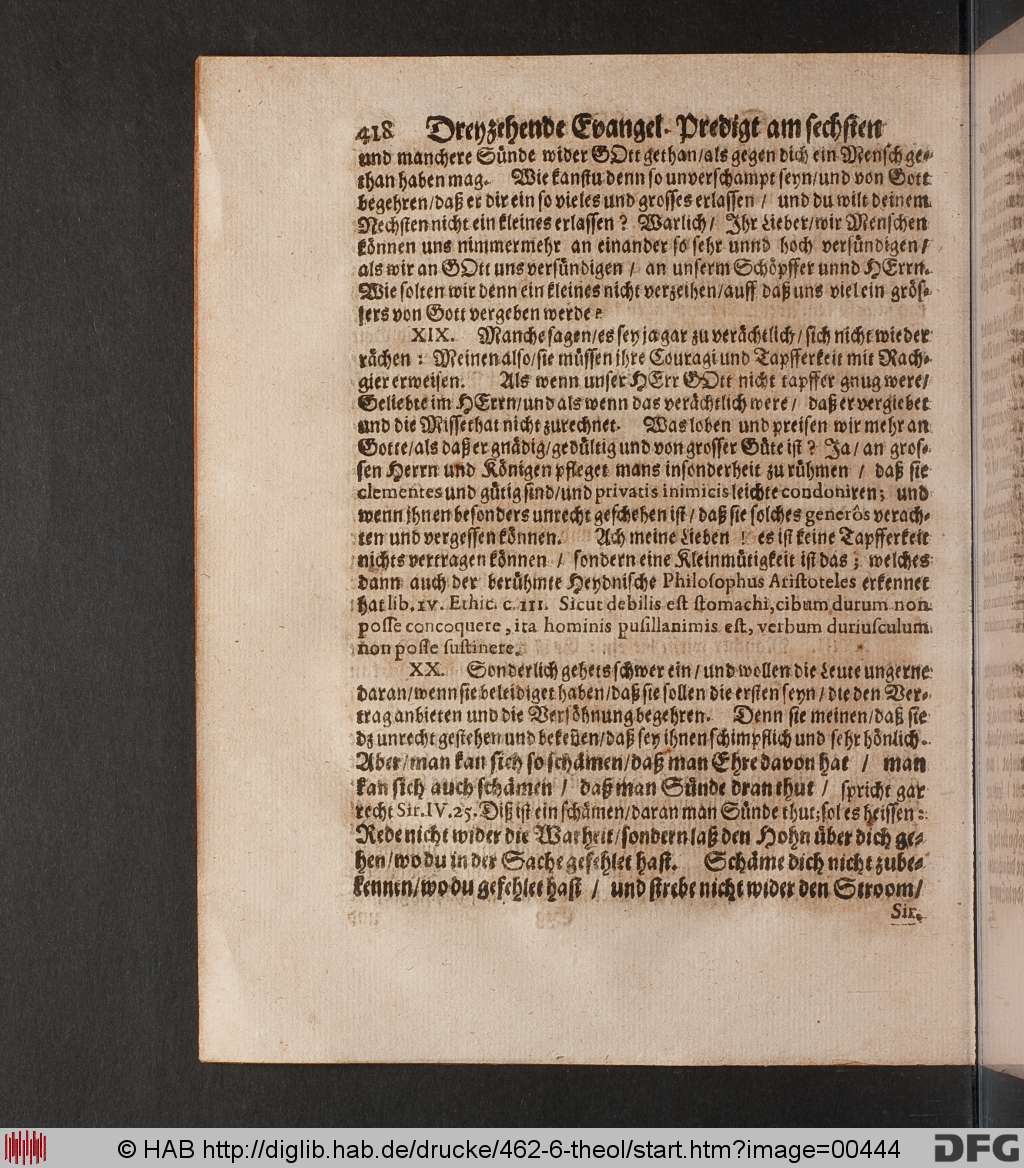 418 Dreyzehende Evangel. Predigt am sechsten
und manchere Sünde wider GOtt gethan/als gegen dich ein Mensch ge-
than haben mag. Wie kanstu denn so unverschampt seyn/und von Gott
begehren/daß er dir ein so vieles und grosses erlassen / und du wilt deinem
Nechsten nicht ein kleines erlassen? Warlich/ Ihr Lieber/wir Menschen
können uns nimmermehr an einander so sehr unnd hoch versündigen/
als wir an GOtt uns versündigen / an unserm Schöpffer unnd HErrn.
Wie solten wir denn ein kleines nicht verzeihen/auff daß uns viel ein grös-
sers von Gott vergeben werde?
XIX. Manche sagen/es sey ja gar zu verächtlich/sich nicht wieder
rächen: Meinen also/sie müssen ihre Couragi und Tapfferkeit mit Rach-
gier erweisen. Als wenn unser HErr GOtt nicht tapffer gnug were/
Geliebte im HErrn/und als wenn das verächtlich were/ daß er vergiebet
und die Missethat nicht zurechnet. Was loben und preisen wir mehr an
Gotte/als daß er gnädig/gedültig und von grosser Güte ist? Ja/an gros-
sen Herrn und Königen pfleget mans insonderheit zu rühmen / daß sie
clementes und gütig sind/und privatis inimicis leichte condoniren; und
wenn ihnen besonders unrecht geschehen ist/daß sie solches generôs verach-
ten und vergessen können. Ach meine Lieben! es ist keine Tapfferkeit
nichts vertragen können / sondern eine Kleinmütigkeit ist das; welches
dann auch der berühmte Heydnische Philosophus Aristoteles erkennet
hat lib. IV. Ethic. c. III. Sicut debilis est stomachi, cibum durum non
posse concoquere, ita hominis pusillanimis est, verbum duriusculum
non posse sustinere.
XX. Sonderlich gehets schwer ein/und wollen die Leute ungerne
daran/wenn sie beleidiget haben/daß sie sollen die ersten seyn/die den Ver-
trag anbieten und die Versöhnung begehren. Denn sie meinen/daß sie
dz unrecht gestehen und bekeñen/daß sey ihnen schimpflich und sehr hönlich.
Aber/man kan sich so schämen/daß man Ehre davon hat / man
kan sich auch schämen / daß man Sünde dran thut / spricht gar
recht Sir. IV. 25. Diß ist ein schämen/daran man Sünde thut; sol es heissen:
Rede nicht wider die Warheit/sondern laß den Hohn über dich ge-
hen/wo du in der Sache gefehlet hast. Schäme dich nicht zube-
kennen/wo du gefehlet hast / und strebe nicht wider den Stroom/
Sir.
© HAB http://diglib.hab.de/drucke/462-6-theol/start.htm?image=00444
DFG